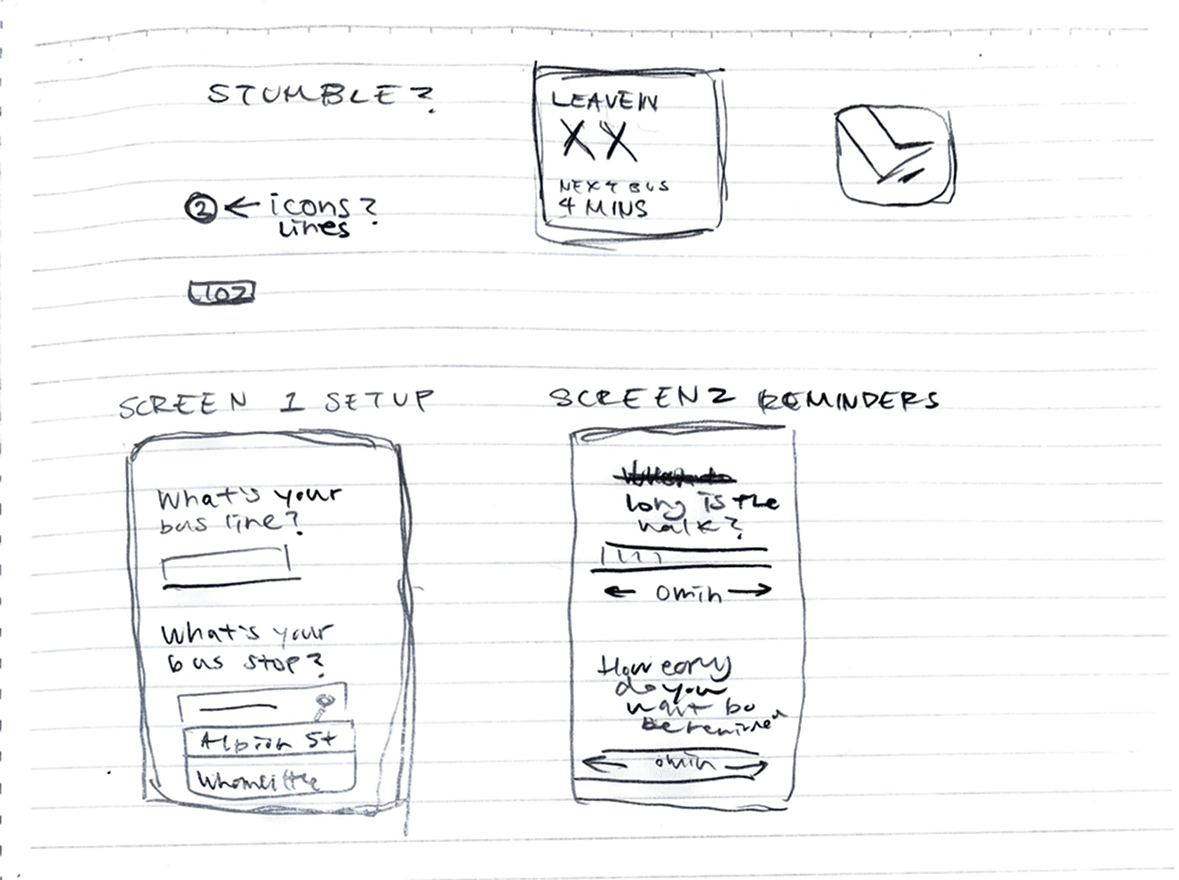 STUMBLE?
LEAVE IN
XX
NEXT BUS
4 MINS
2 ← icons?
lines
102
SCREEN 1 SETUP
What's your
bus line?
What's your
bus stop?
Albion St
SCREEN 2 REMINDERS
long is the
walk?
← 0min →
How early
do you
want to
be remined
← 0min →